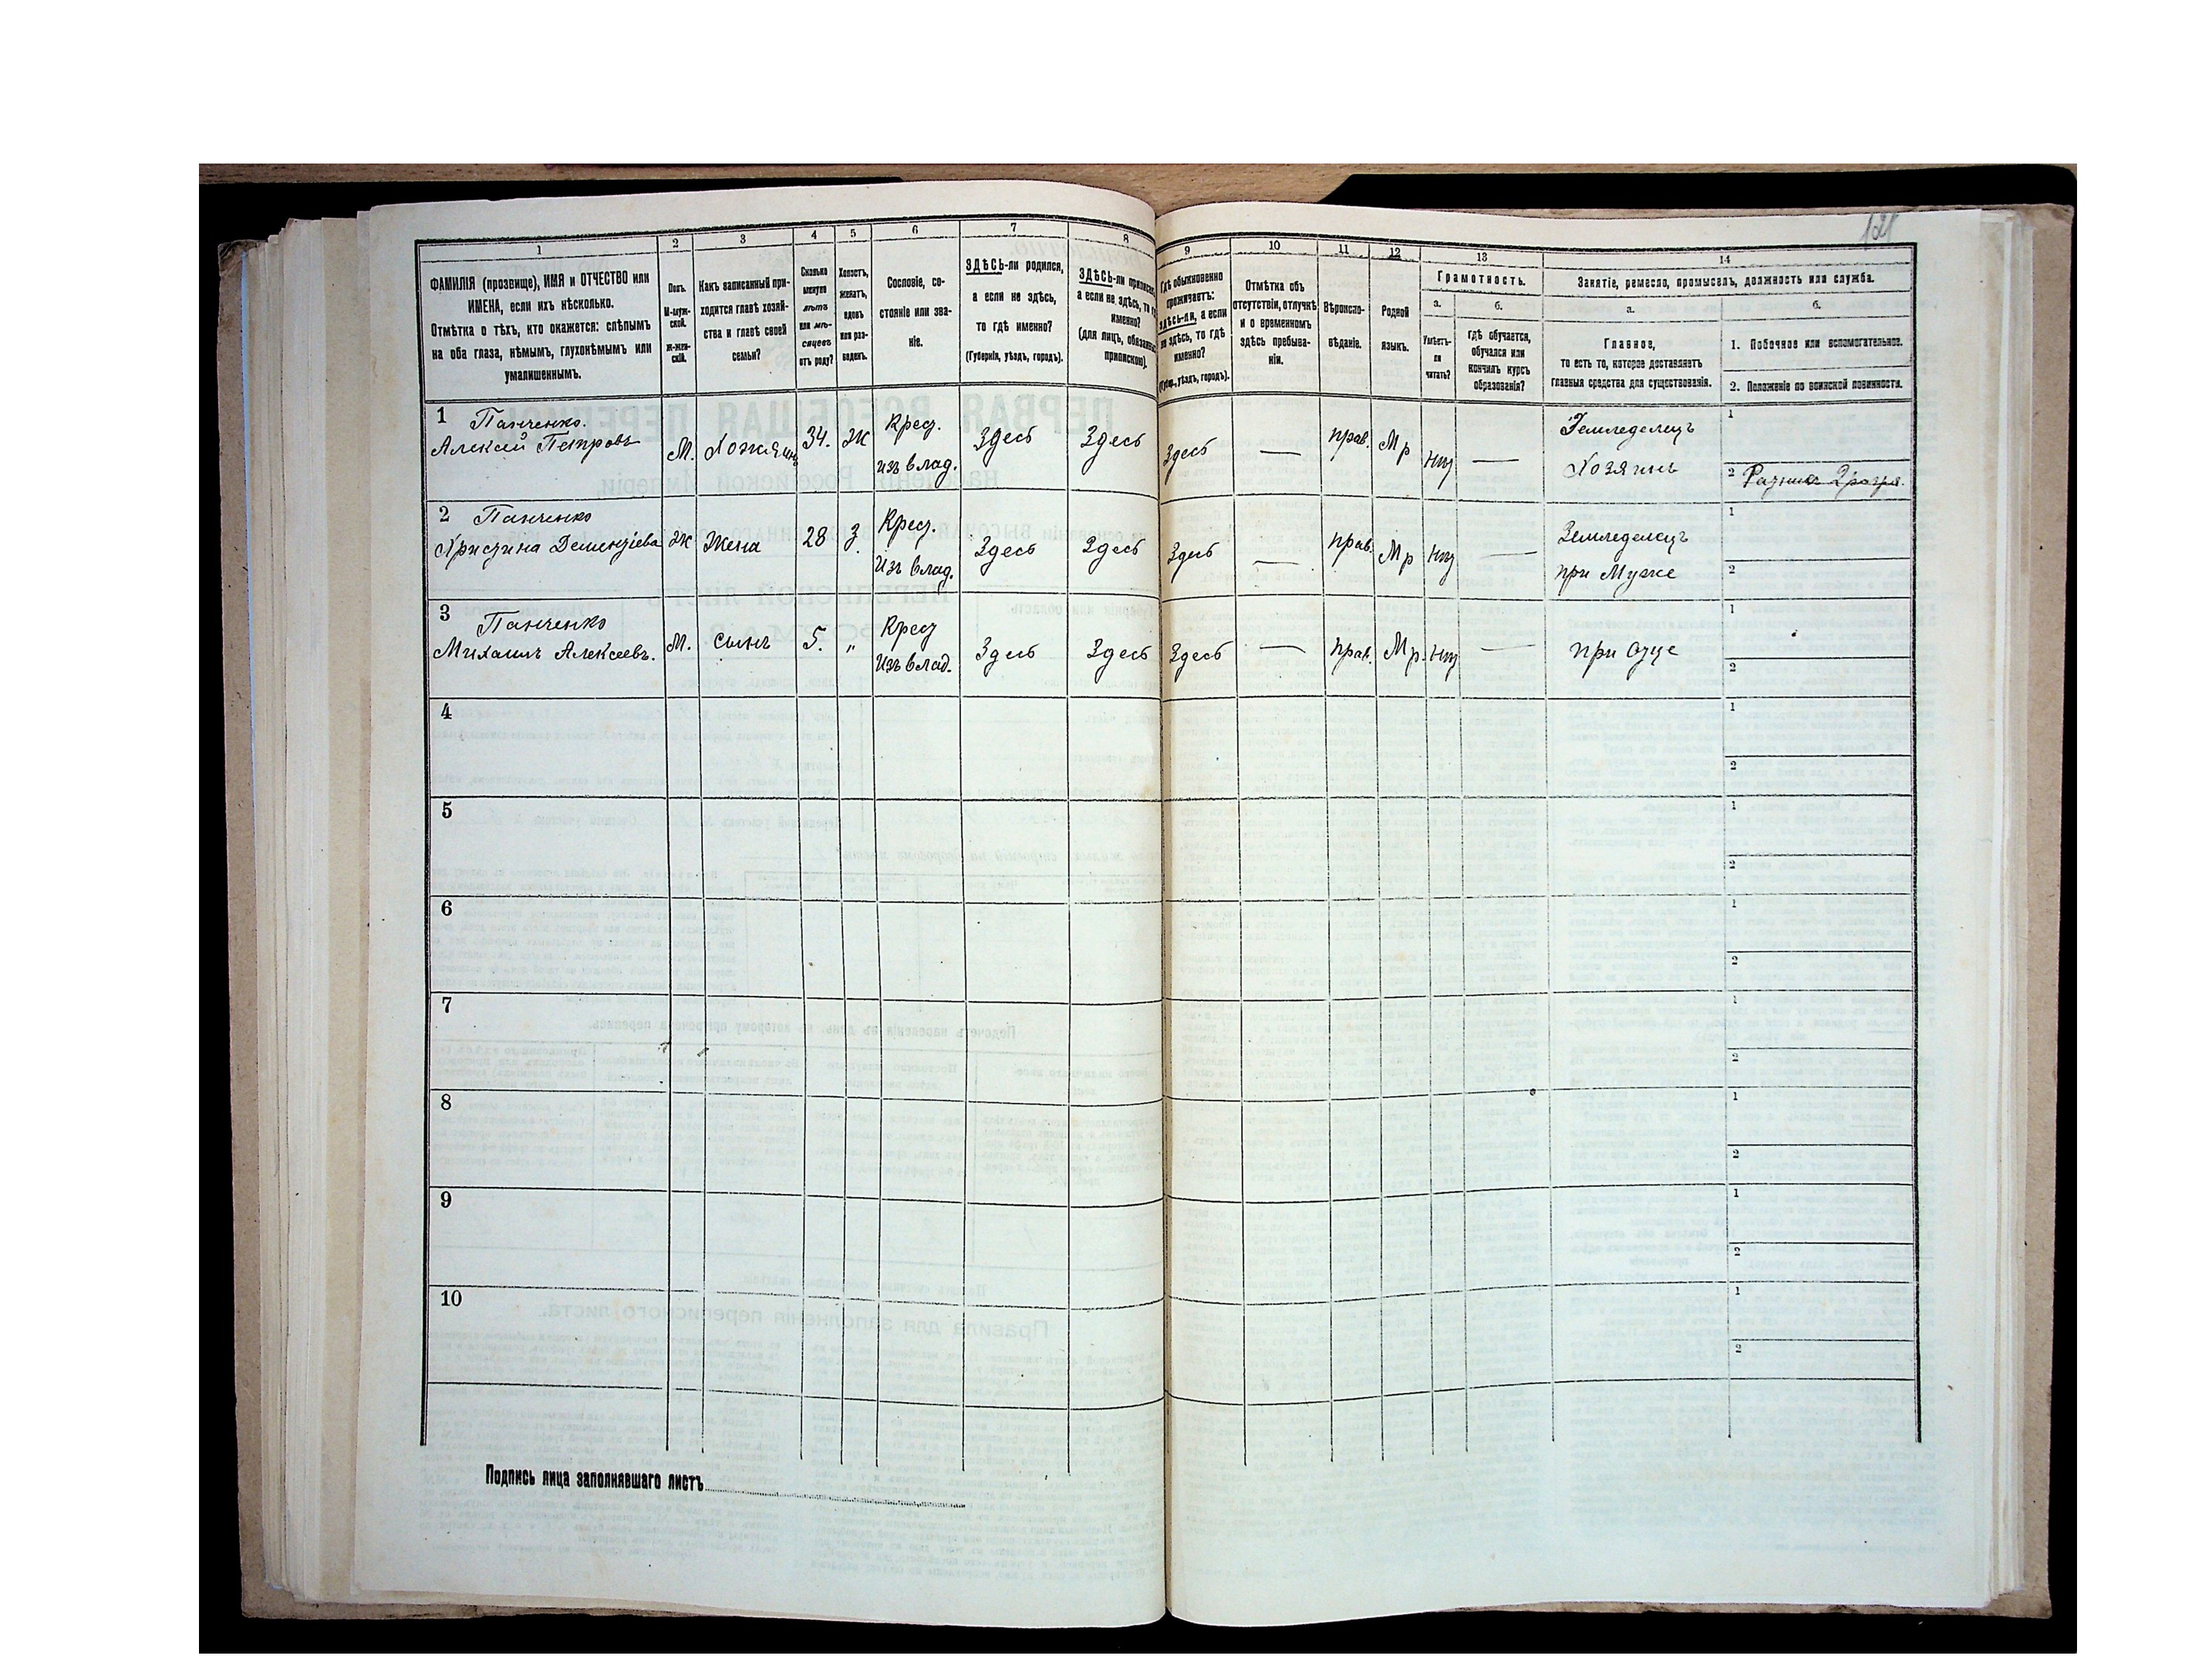 121
1 2 3 4 5 6 7 8 9 10 11 12 13 14
ФАМИЛІЯ (прозвище), ИМЯ и ОТЧЕСТВО или
ИМЕНА, если ихъ нѣсколько.
Отмѣтка о тѣхъ, кто окажется: слѣпымъ
на оба глаза, нѣмымъ, глухонѣмымъ или
умалишеннымъ.
Полъ.
М-муж-
ской.
Ж-жен-
скій.
Какъ записанный при-
ходится главѣ хозяй-
ства и главѣ своей
семьи?
Сколько
минуло
лѣтъ
или мѣ-
сяцевъ
отъ роду?
Холостъ,
женатъ,
вдовъ
или раз-
веденъ.
Сословіе, со-
стояніе или зва-
ніе.
ЗДѢСЬ-ли родился,
а если не здѣсь,
то гдѣ именно?
(Губернія, уѣздъ, городъ).
ЗДѢСЬ-ли
а если не здѣсь, то
именно?
(для лицъ,
припискою).
обыкновенно
проживаетъ:
здѣсь-ли, а если
не здѣсь, то гдѣ
именно?
уѣздъ, городъ).
Отмѣтка объ
отсутствіи, отлучкѣ
и о временномъ
здѣсь пребыва-
ніи.
Вѣроиспо-
вѣданіе.
Родной
языкъ.
Грамотность.
а. б.
Умѣетъ-
ли
читать?
гдѣ обучается,
обучался или
кончилъ курсъ
образованія?
Занятіе, ремесло, промыселъ, должность или служба.
а. б.
Главное,
то есть то, которое доставляетъ
главныя средства для существованія.
1. Побочное или вспомогательное.
2. Положеніе по воинской повинности.
1 Панченко.
Алексѣй Петровъ М. Хозяинъ 34. Ж Крест. изъ влад. Здесь Здесь Здесь — прав. Мр нѣт — Земледелецъ Хозяинъ
1
2
2 Панченко
Христина Дементіева Ж Жена 28 З. Крест. Изъ влад. Здесь Здесь Здесь — прав. Мр нѣт — Земледелецъ при Муже
1
2
3 Панченко
Михаилъ Алексеевъ. М. сынъ 5. „ Крест Изъ влад. Здесь Здесь Здесь — прав. Мр. нѣт — при Отце
1
2
4
1
2
5
1
2
6
1
2
7
1
2
8
1
2
9
1
2
10
1
2
Подпись лица заполнявшаго листъ